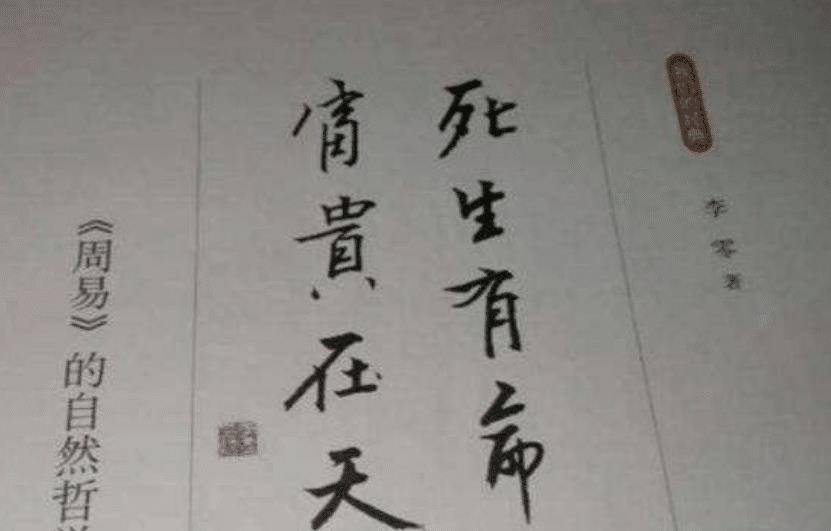 李零 著
死生有命
富貴在天
《周易》的自然哲